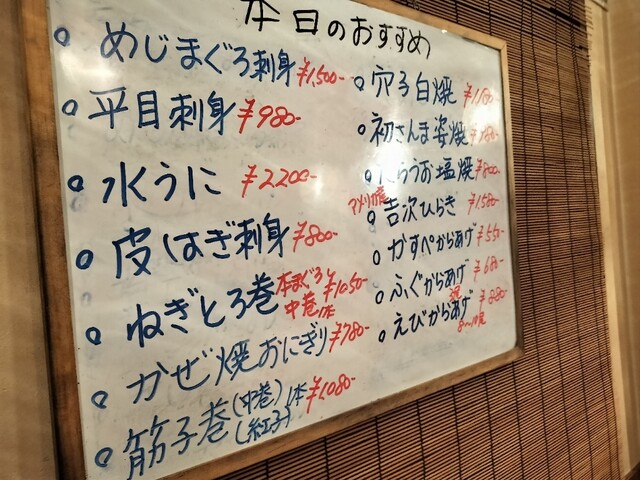 本日のおすすめ
めじまぐろ刺身 ¥1,500-
平目刺身 ¥980-
水うに ¥2200-
皮はぎ刺身 ¥800-
ねぎとろ巻 本まぐろ 中巻1本 ¥1050-
かぜ焼おにぎり ¥780-
筋子巻(中巻)1本 ¥1080-
(紅子)
穴子白焼
初さんま姿焼
塩焼 ¥800-
アメリカ産
吉次ひらき ¥1580-
かすべからあげ ¥550-
ふぐからあげ ¥680-
えびからあげ ¥880-